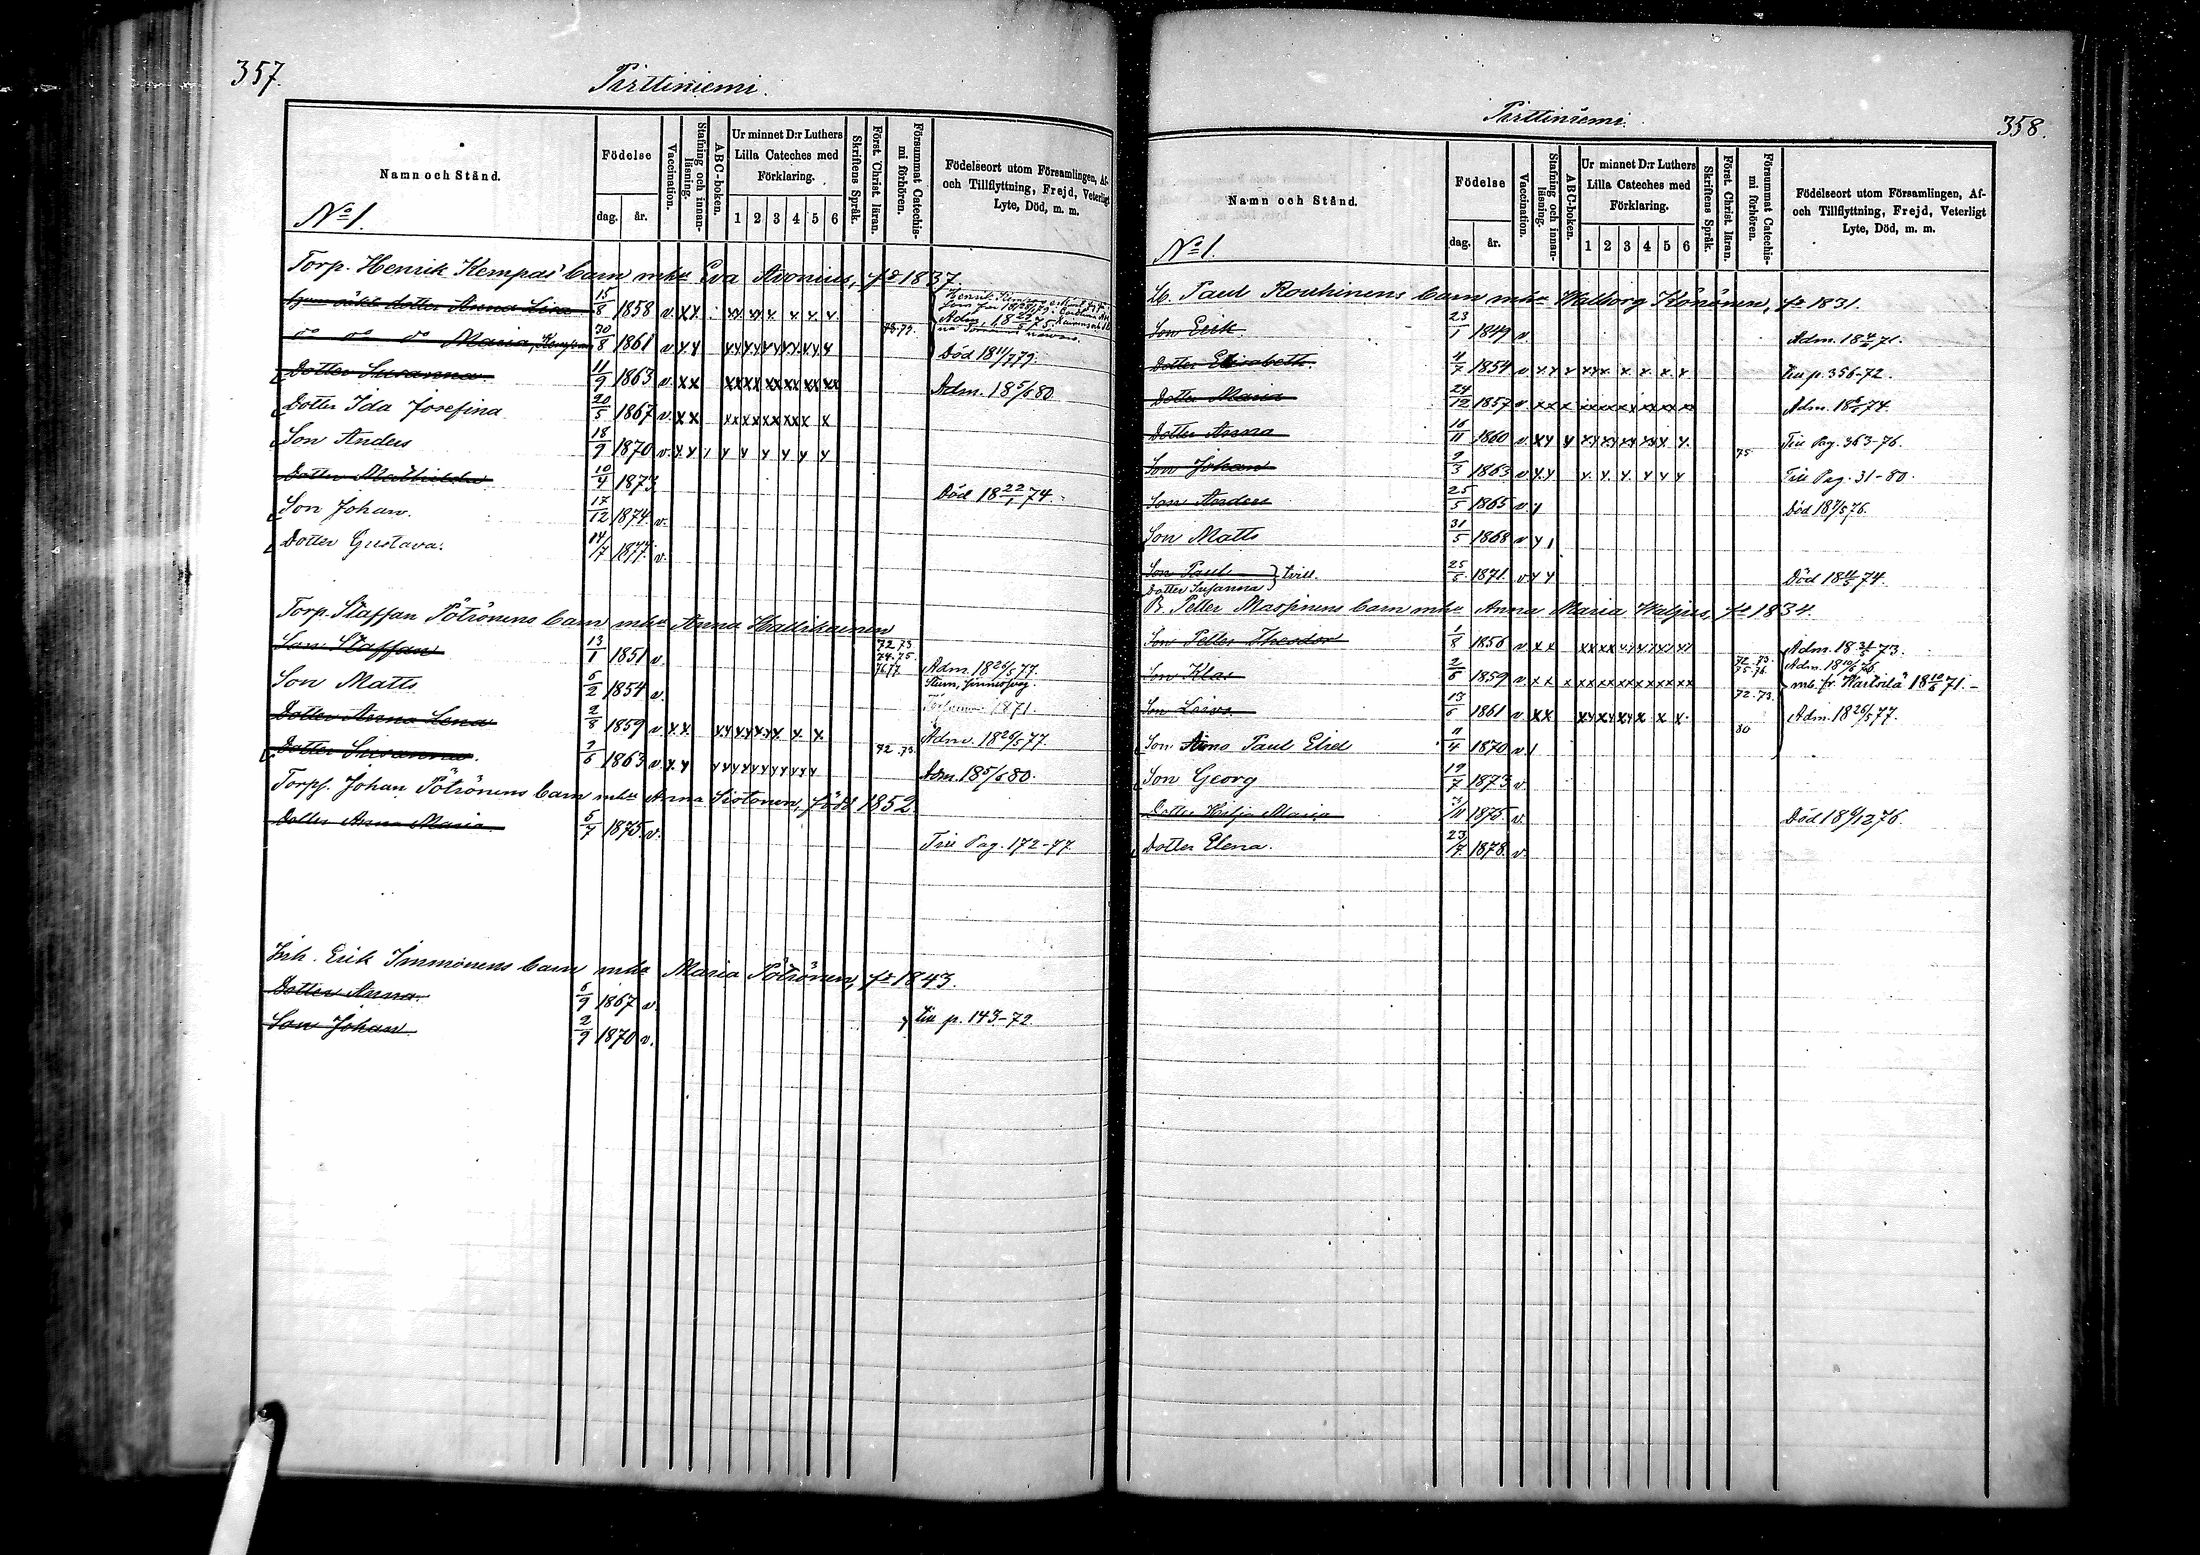 357.
Pärttiniemi.
Namn och Stånd.
Födelse
dag. år.
Vaccination.
Stafning och innanläsning.
ABC-boken.
Ur minnet D:r Luthers Lilla Cateches med Förklaring.
1 2 3 4 5 6
Skriftens Språk.
Först. Christ. läran.
Försummat Catechismi förhören.
Födelseort utom Församlingen, Af- och Tillflyttning, Frejd, Veterligt Lyte, Död, m. m.
No 1.
Torp. Henrik Kempas' barn mhu Eva Avonius, fd 1837
dotter Anna Lisa 15/8 1858 v. x x x x x x x x
do do do Maria, 30/8 1861 v. x x Död 18 11/7 79.
Dotter Susanna 11/9 1863 v. x x Adm. 18 5/6 80
Dotter Ida Josefina 20/5 1867 v. x x
Son Anders 18/9 1870 v. x x
Dotter Mathilda 10/4 1873 Död 18 22/1 74.
Son Johan. 17/12 1874 v.
Dotter Gustava. 14/7 1877 v.
Torp. Staffan Pötrönens barn mhu Anna Hallikainen
Son Staffan 13/1 1851 v. 72 73 74. 75. 76 77 Adm. 18 26/5 77.
Son Matts 6/2 1854 v. 1871.
Dotter Anna Lena 2/8 1859 v. x x Adm. 18 26/5 77
Dotter Susanna. 7/6 1863 v. x x 72 73. Adm. 18 5/6 80.
Torpp. Johan Pötrönens barn mhu Anna Siotonen, född 1852.
Dotter Anna Maria 5/7 1875. v. Till Pag. 172-77
Inh. Erik Immonens barn mhu Maria Pötrönen, fd 1843.
Dotter Anna. 6/9 1867 v.
Son Johan 2/9 1870 v. till p. 143-72
Pärttiniemi.
358.
Namn och Stånd.
Födelse
dag. år.
Vaccination.
Stafning och innanläsning.
ABC-boken.
Ur minnet D:r Luthers Lilla Cateches med Förklaring.
1 2 3 4 5 6
Skriftens Språk.
Först. Christ. läran.
Försummat Catechismi förhören.
Födelseort utom Församlingen, Af- och Tillflyttning, Frejd, Veterligt Lyte, Död, m. m.
No 1.
Lb. Paul Rouhinens barn mhu Walborg Könönen, fd 1831.
Son Erik 23/1 1849 v. Adm. 71.
Dotter Elisabeth. 4/7 1854 v. x x x till p. 356-72.
Dotter Maria 24/12 1857 v. x x x Adm. 74.
Dotter Anna 16/11 1860 v. x x x Till Pag. 363-76.
Son Johan 9/3 1863 v. x x 75 Till Pag. 31-80.
Son Anders 25/5 1865 v. Död 76.
Son Matts 31/5 1868 v.
Son Paul } tvill. 25/5 1871. v. Död 74.
Dotter Susanna
B. Petter Massinens barn mhu Anna Maria Waljus, fd 1834.
Son Petter Theodor 1/8 1856 v. x x Adm. 18 31/5 73.
Son Klas 2/6 1859 v. x x 72. 73. 75. 76. Adm. 76. mb. fr. Wärtsilä 71.
Son Loivs 13/6 1861 v. x x 72. 73. Adm. 18 26/5 77.
Son Arno Paul Eliel 11/4 1870 v. 80
Son Georg 19/7 1873 v.
Dotter Hilja Maria 3/11 1875. v. Död 76.
Dotter Elena. 23/7 1878. v.